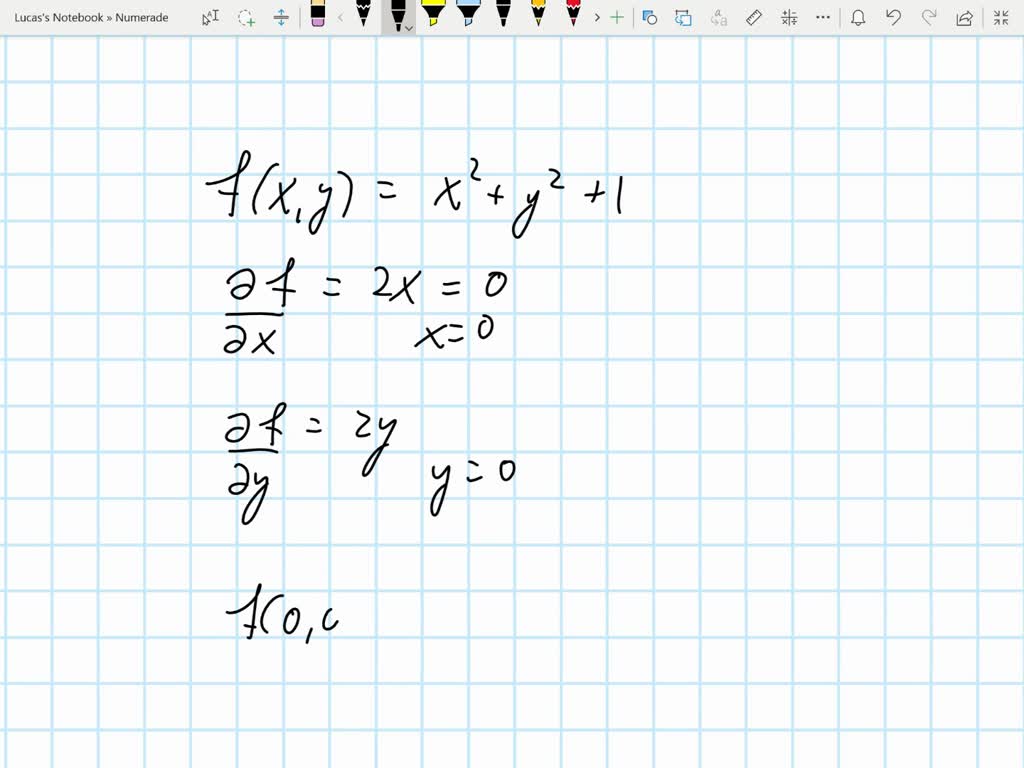 Lucas's Notebook » Numerade
f(x,y) = x² + y² + 1
∂f/∂x = 2x = 0
x = 0
∂f/∂y = 2y
y = 0
f(0,